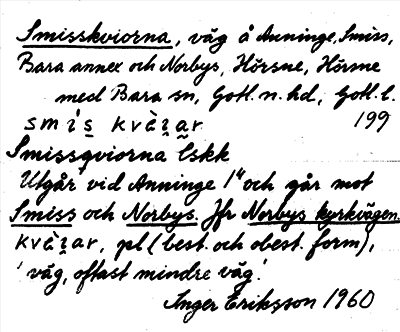 Smisskviorna, väg å Anninge, Smiss,
Bara annex och Norbys, Hörsne, Hörsne
med Bara sn, Gotl. n. hd, Gotl. l.
smis kvàiar 199
Smissqviorna Eskk
Utgår vid Anninge 1" och går mot
Smiss och Norbys. Jfr Norbys kyrkvägen.
kvàiar, pl (best. och obest. form),
'väg, oftast mindre väg'.
Inger Eriksson 1960